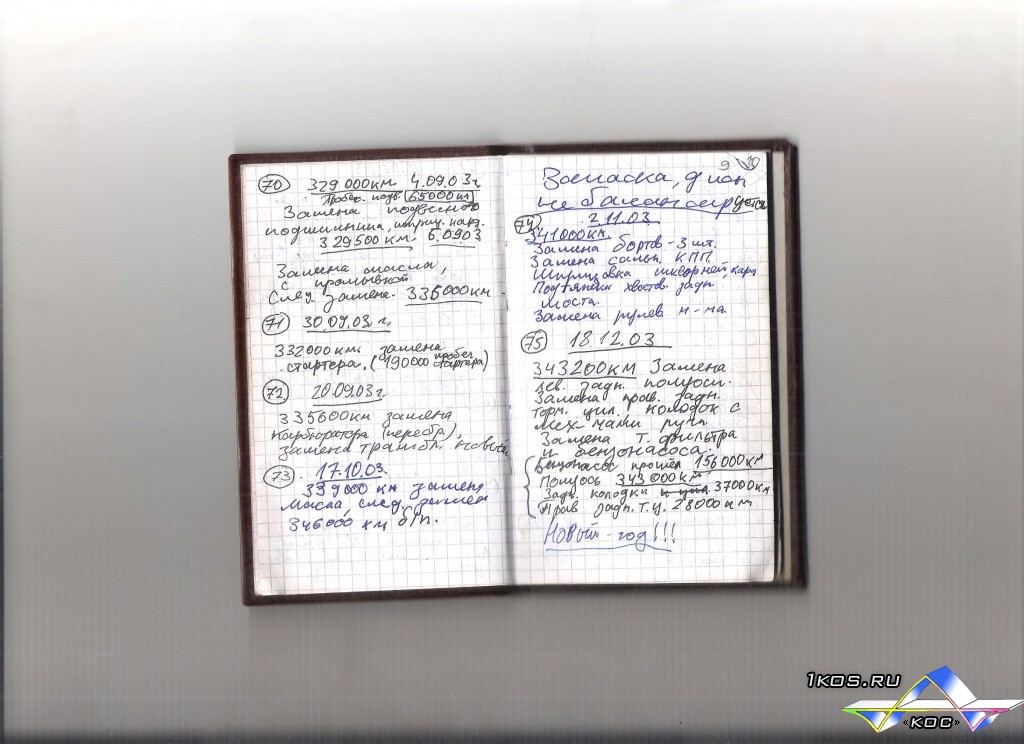 70 329 000 км 4.09.03 г.
Пробег. подв. 65000 км
Замена подвесного
подшипника, шприц. кард.
329500 км. 6.09.03
Замена масла,
с промывкой
След замена - 336000 км
71 30.09.03. г.
332000 км. замена
стартера. (190000 пробег стартера)
72 20.09.03 г.
335600 км замена
карбюратора (перебр),
замена трамбл. новый
73 17.10.03.
339000 км замена
масла, след. замен
346000 км б/п.
9 10
Запаска, 4 из
не балансируется
2.11.03
74 341000 км.
Замена бортов - 3 шт.
Замена сальн. КПП.
Шприцовка шкворней, кард
Подтяжки хвостов. задн.
моста.
Замена рулев н-ка.
75 18.12.03
343200 км Замена
лев. задн. полуоси.
Замена прав. задн.
торм. цил. колодок с
мех-мами ручн.
Замена т. фильтра
и бензонасоса.
Бензонасос прошел 156000 км
Полуось 343000 км
Задн. колодки 37000 км
Прав задн. т.ц. 28000 км
Новый - год!!!
1KOS.RU
«КОС»